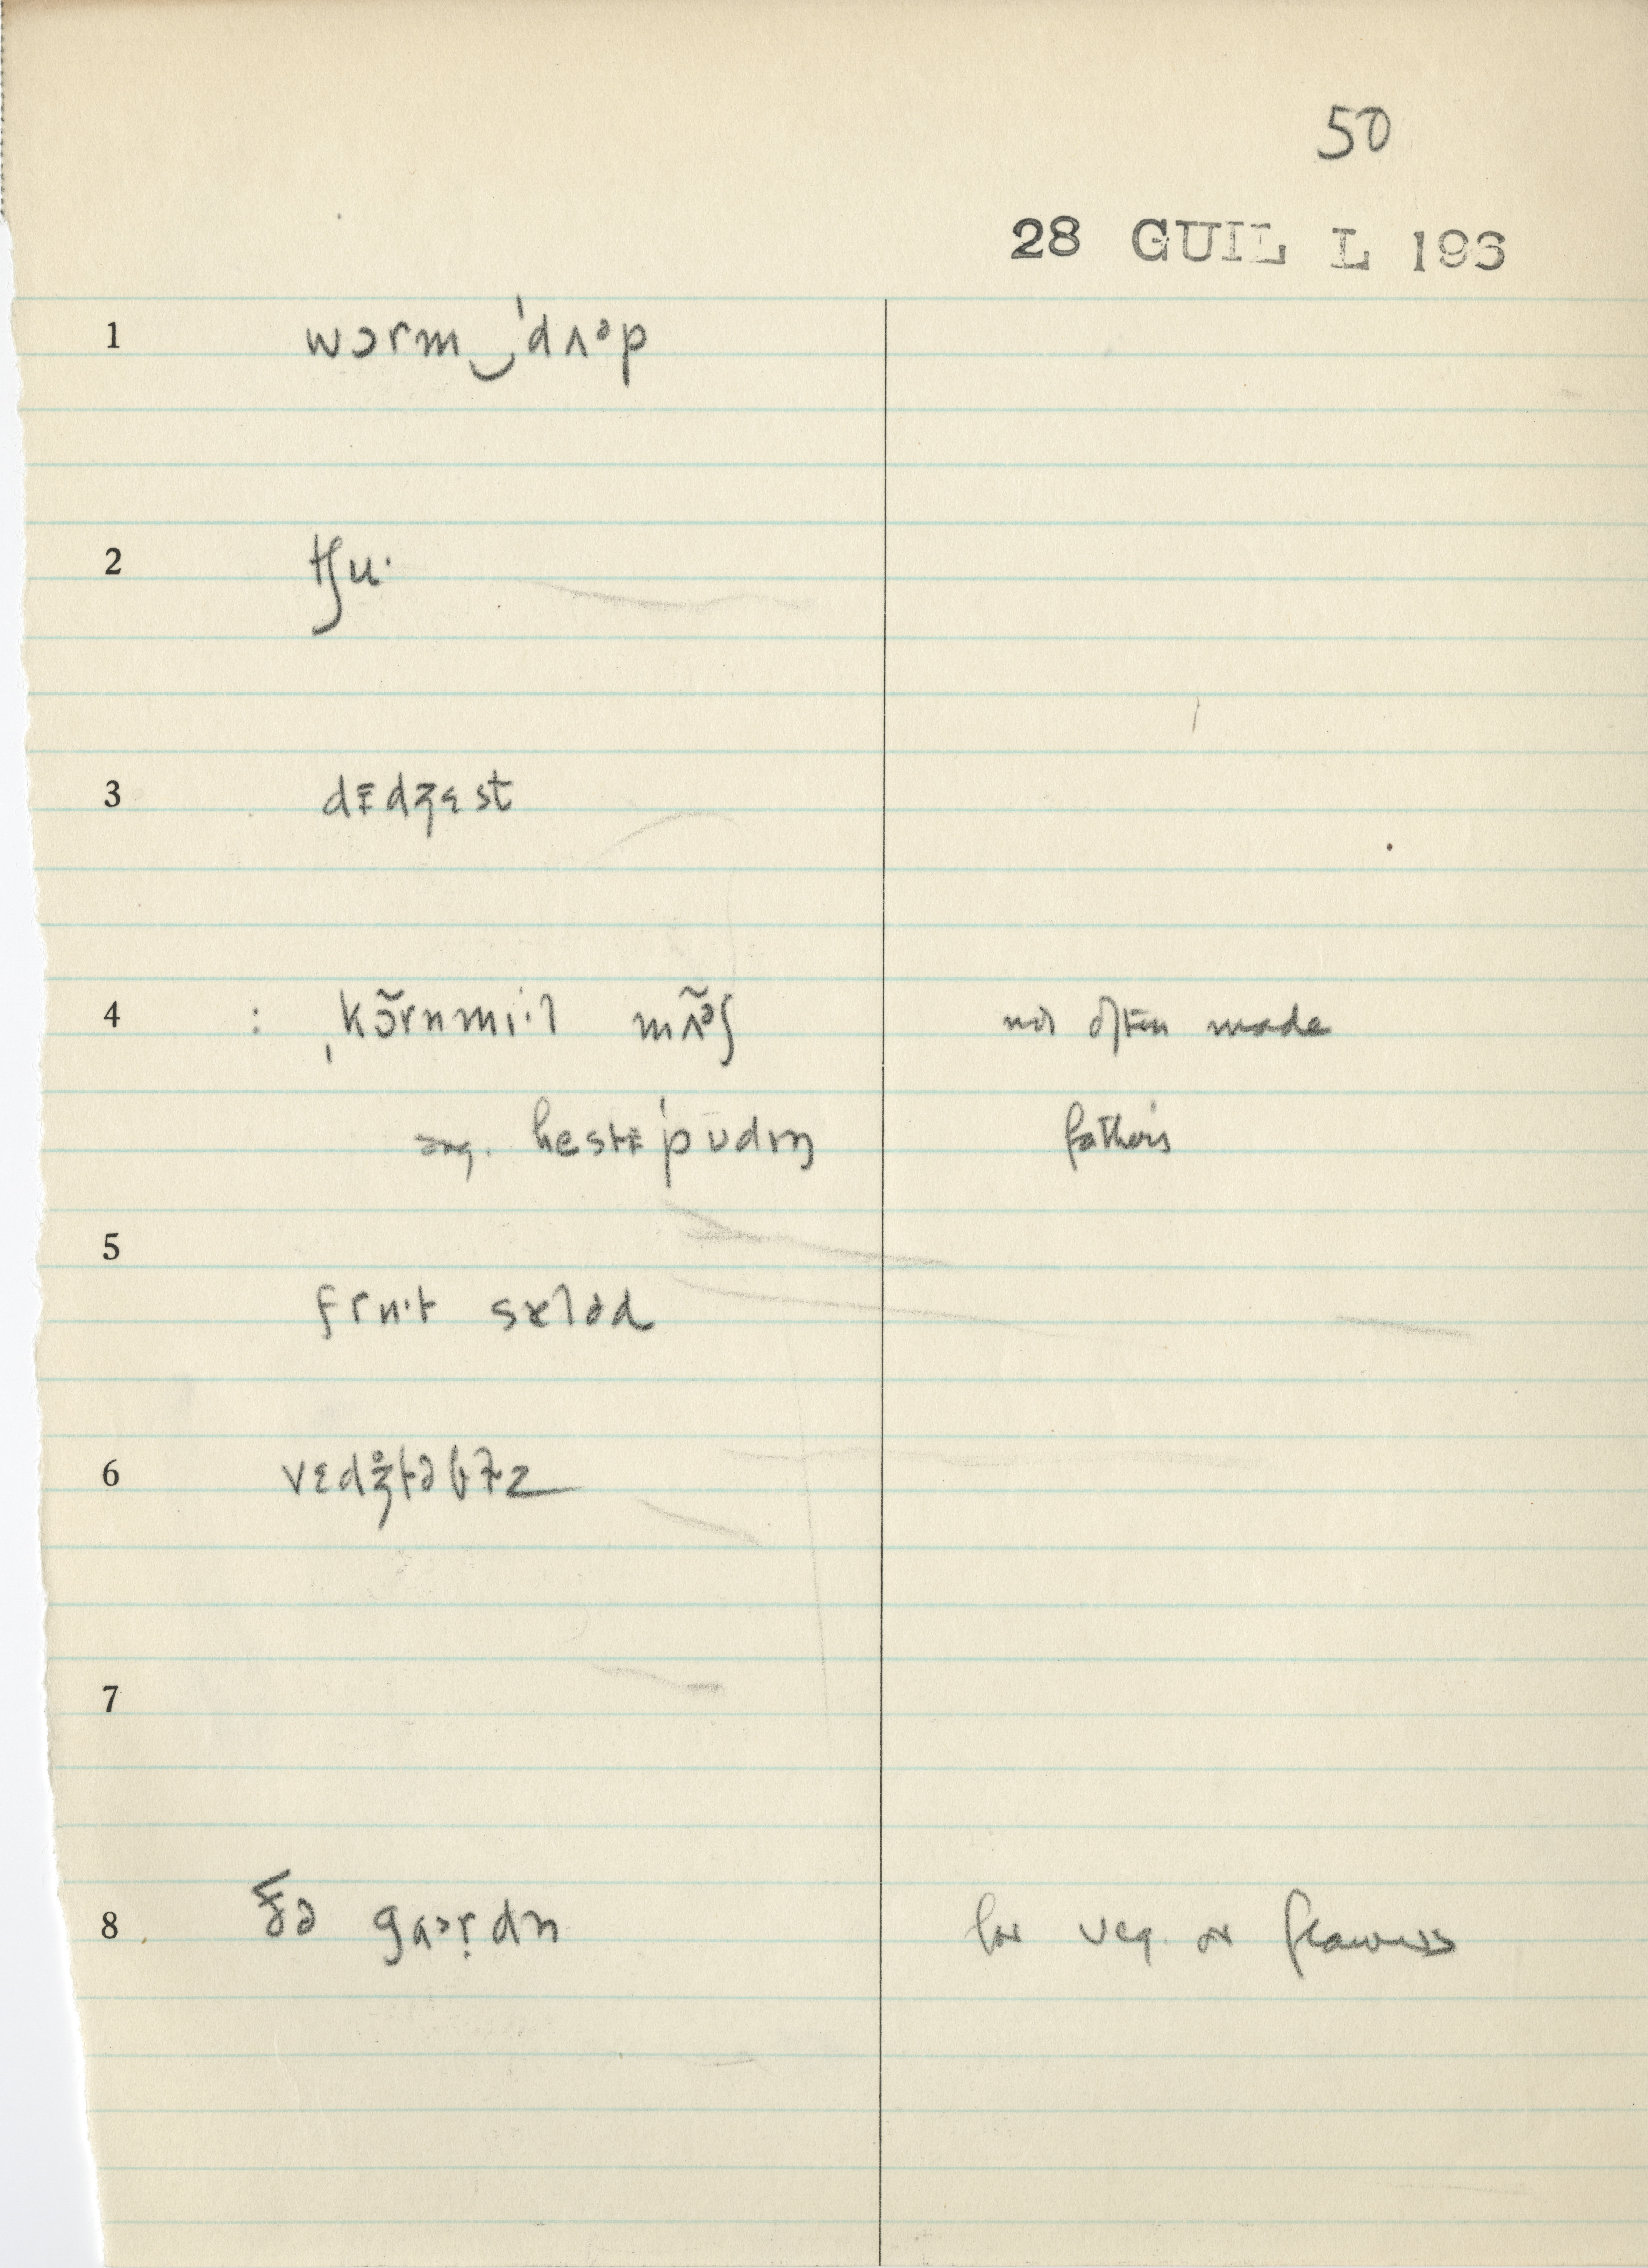 50
28 GUIL L 196
1 wɔrm‿ˈdʌᵊp
2 tʃuˑ
3 dɪdʒɛst
4 : ˌkɔ̃rnmiˑl mʌ̃ᵊʃ not often made
hestɪˈpʊdɪŋ father's
5
fruˑt sæləd
6 vɛdʒ̊təbɫz
7
8 ðə gaɔrdn for veg. or flowers